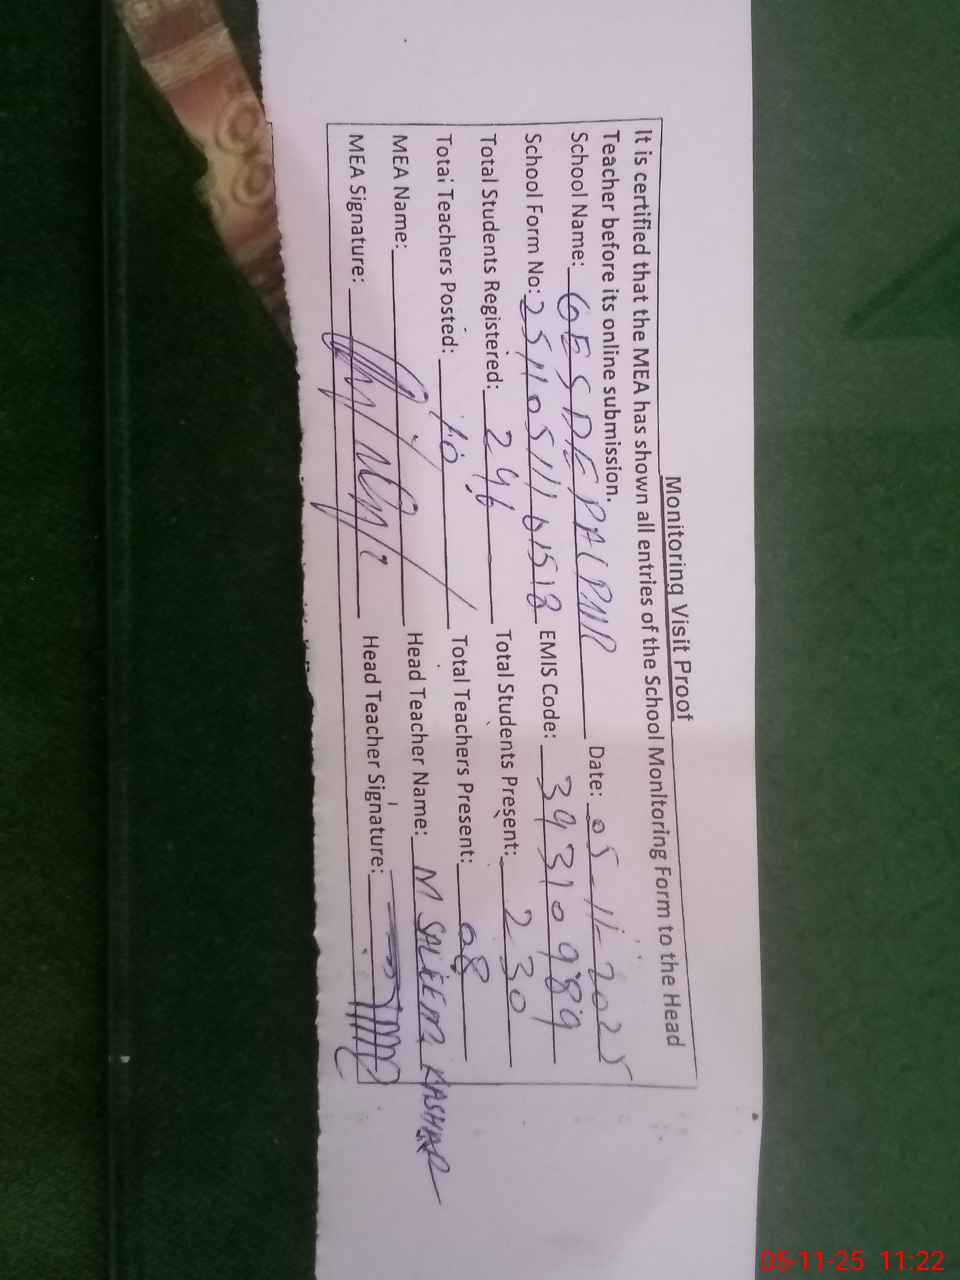 Monitoring Visit Proof
It is certified that the MEA has shown all entries of the School Monitoring Form to the Head
Teacher before its online submission.
School Name: GES DEPALPUR Date: 05-11-2025
School Form No: EMIS Code: 39310989
Total Students Registered: 246 Total Students Present: 230
Total Teachers Posted: 10 Total Teachers Present: 08
MEA Name: Head Teacher Name: M SALEEM
MEA Signature: Head Teacher Signature:
05-11-25 11:22